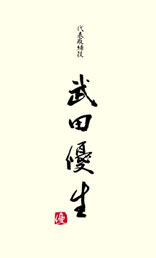 代表取締役
武田優生
優